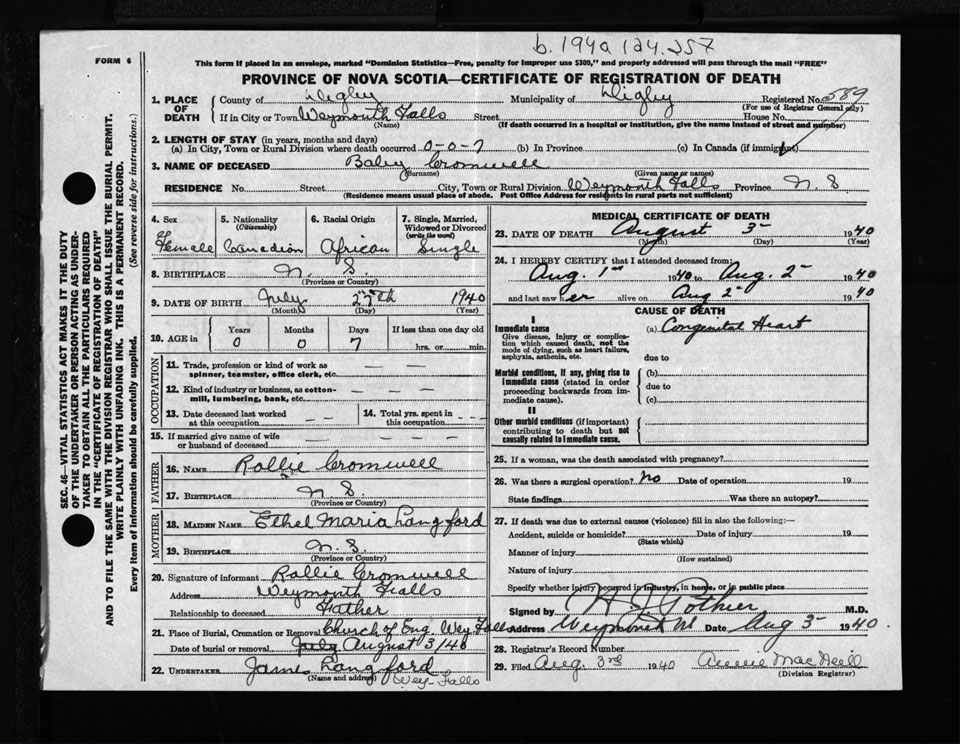 b. 1940 124.257
FORM 6
This form if placed in an envelope, marked "Dominion Statistics—Free, penalty for improper use $300," and properly addressed will pass through the mail "FREE"
PROVINCE OF NOVA SCOTIA—CERTIFICATE OF REGISTRATION OF DEATH
1. PLACE OF DEATH
County of Digby Municipality of Digby Registered No. 589
(For use of Registrar General only)
If in City or Town Weymouth Falls Street House No.
(Name) (If death occurred in a hospital or institution, give the name instead of street and number)
2. LENGTH OF STAY (in years, months and days)
(a) In City, Town or Rural Division where death occurred 0-0-7 (b) In Province (c) In Canada (if immigrant)
3. NAME OF DECEASED Baby Cromwell
(Surname) (Given name or names)
RESIDENCE No. Street City, Town or Rural Division Weymouth Falls Province N. S
(Residence means usual place of abode. Post Office Address for residents in rural parts not sufficient)
SEC. 46—VITAL STATISTICS ACT MAKES IT THE DUTY
OF THE UNDERTAKER OR PERSON ACTING AS UNDER-
TAKER TO OBTAIN ALL THE PARTICULARS REQUIRED
IN THE "CERTIFICATE OF REGISTRATION OF DEATH"
AND TO FILE THE SAME WITH THE DIVISION REGISTRAR WHO SHALL ISSUE THE BURIAL PERMIT.
WRITE PLAINLY WITH UNFADING INK. THIS IS A PERMANENT RECORD.
Every item of Information should be carefully supplied. (See reverse side for instructions.)
4. Sex
Female
5. Nationality
(Citizenship)
Canadian
6. Racial Origin
African
7. Single, Married,
Widowed or Divorced
(write the word)
Single
8. BIRTHPLACE N. S.
(Province or Country)
9. DATE OF BIRTH July 27th 1940
(Month) (Day) (Year)
10. AGE in
Years Months Days If less than one day old
0 0 7 hrs. or min.
OCCUPATION
11. Trade, profession or kind of work as
spinner, teamster, office clerk, etc. — — —
12. Kind of industry or business, as cotton-
mill, lumbering, bank, etc. — — —
13. Date deceased last worked
at this occupation — —
14. Total yrs. spent in
this occupation - - -
15. If married give name of wife
or husband of deceased — — — —
FATHER
16. NAME Rollie Cromwell
17. BIRTHPLACE N. S.
(Province or Country)
MOTHER
18. MAIDEN NAME Ethel Maria Langford
19. BIRTHPLACE N. S.
(Province or Country)
20. Signature of informant Rollie Cromwell
Address Weymouth Falls
Relationship to deceased Father
21. Place of Burial, Cremation or Removal Church of Eng. Wey Falls
Date of burial or removal July August 3/40
22. UNDERTAKER James Langford
(Name and address) Wey Falls
MEDICAL CERTIFICATE OF DEATH
23. DATE OF DEATH August 3 1940
(Month) (Day) (Year)
24. I HEREBY CERTIFY that I attended deceased from:
Aug. 1st 1940 to Aug. 2 1940
and last saw her alive on Aug 2 1940
CAUSE OF DEATH
I
Immediate cause (a) Congenital Heart
Give disease, injury or complica-
tion which caused death, not the
mode of dying, such as heart failure,
asphyxia, asthenia, etc.
due to
Morbid conditions, if any, giving rise to
immediate cause (stated in order
proceeding backwards from im-
mediate cause).
(b)
due to
(c)
II
Other morbid conditions (if important)
contributing to death but not
causally related to immediate cause.
25. If a woman, was the death associated with pregnancy?
26. Was there a surgical operation? No Date of operation 19
State findings Was there an autopsy?
27. If death was due to external causes (violence) fill in also the following:—
Accident, suicide or homicide? Date of injury 19
(State which)
Manner of injury
(How sustained)
Nature of injury
Specify whether injury occurred in industry, in home, or in public place
Signed by Pothier M.D.
Address Weymouth Date Aug 3 1940
28. Registrar's Record Number
29. Filed Aug. 3rd 1940 Annie MacNeill
(Division Registrar)